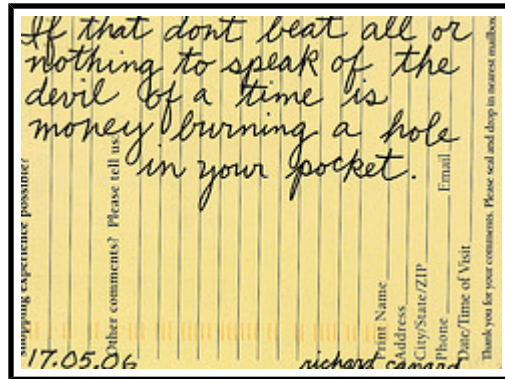 If that dont beat all or
nothing to speak of the
devil of a time is
money burning a hole
in your pocket.
17.05.06 richard canard
shopping experience possible?
Other comments? Please tell us
Print Name
Address
City/State/ZIP
Phone Email
Date/Time of Visit
Thank you for your comments. Please seal and drop in nearest mailbox